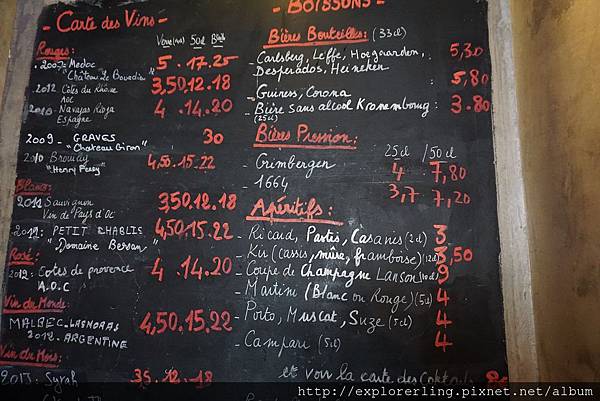 - Carte des Vins -
Verre(12cl) 50cl Btlle
Rouges:
. 2007: Medoc 5 . 17.25
"Château Le Bourdieu"
2012 Côtes du Rhône 3,50.12.18
AOC
2010 - Navajas Rioja 4 . 14.20
Espagne
2009 - GRAVES 30
"Chateau Giron"
2010 Brouilly 4,50.15.22
"Henry Fessy"
Blancs:
2012 Sauvignon 350.12.18
Vin de Pays d'Oc
2012: PETIT CHABLIS 4,50.15.22
"Domaine Bersan"
Rosé:
2012: Cotes de provence 4 .14.20
A.O.C
Vin du Monde:
MALBEC 4,50.15.22
2012 - ARGENTINE
Vin du Mois:
2013: Syrah 35.12.18
- BOISSONS -
Bières Bouteilles: (33cl)
- Carlsberg, Leffe, Hoegaarden, 5,30
Desperados, Heineken
- Guiness, Corona 5,80
- Bière Sans alcool Kronembourg: 3.80
(25cl)
Bières Pression: 25cl / 50cl
- Grimbergen 4 7,80
- 1664 3,7 7,20
Apéritifs:
- Ricard, Pastis, Casanis (2cl) 3
- Kir (cassis, mûre, framboise) (12cl) 3,50
- Coupe de Champagne Lanson (10cl) 9
- Martini (Blanc ou Rouge) (5cl) 4
- Porto, Muscat, Suze (5cl) 4
- Campari (5cl) 4
et voir la carte des Cocktails
http://explorerling.pixnet.net/album